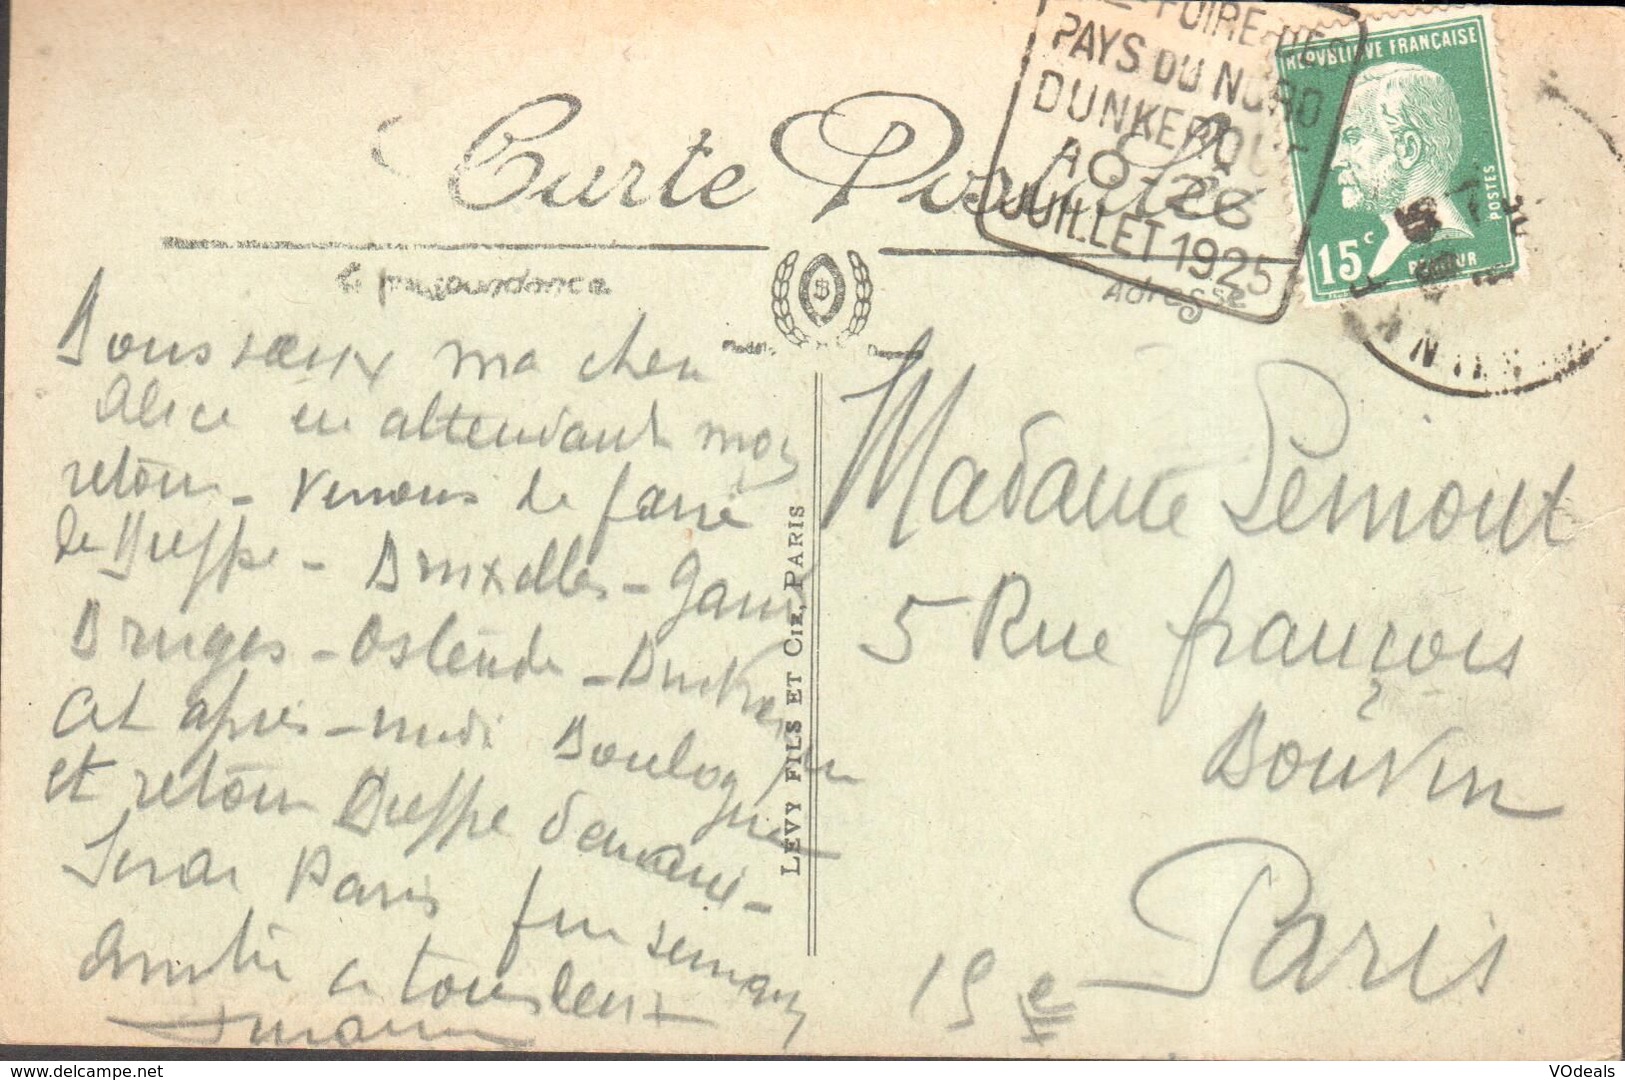 FOIRE DES
PAYS DU NORD
DUNKERQUE
AO-26
JUILLET 1925
REPVBLIQVE FRANÇAISE
POSTES
15c
PASTEUR
Carte Postale
Correspondance
Adresse
Bons vœux ma chère
Alice en attendant mon
retour - Venons de faire
de Dieppe - Bruxelles - Gand
Bruges - Ostende - Dunkerque
Cet après-midi Boulogne
et retour Dieppe demain -
Serai Paris fin semaine
Amitiés à tous deux
Madame Pemont
5 Rue François
Bonvin
Paris
15e
LEVY FILS ET CIE, PARIS
© VOdeals
https://www.delcampe.net